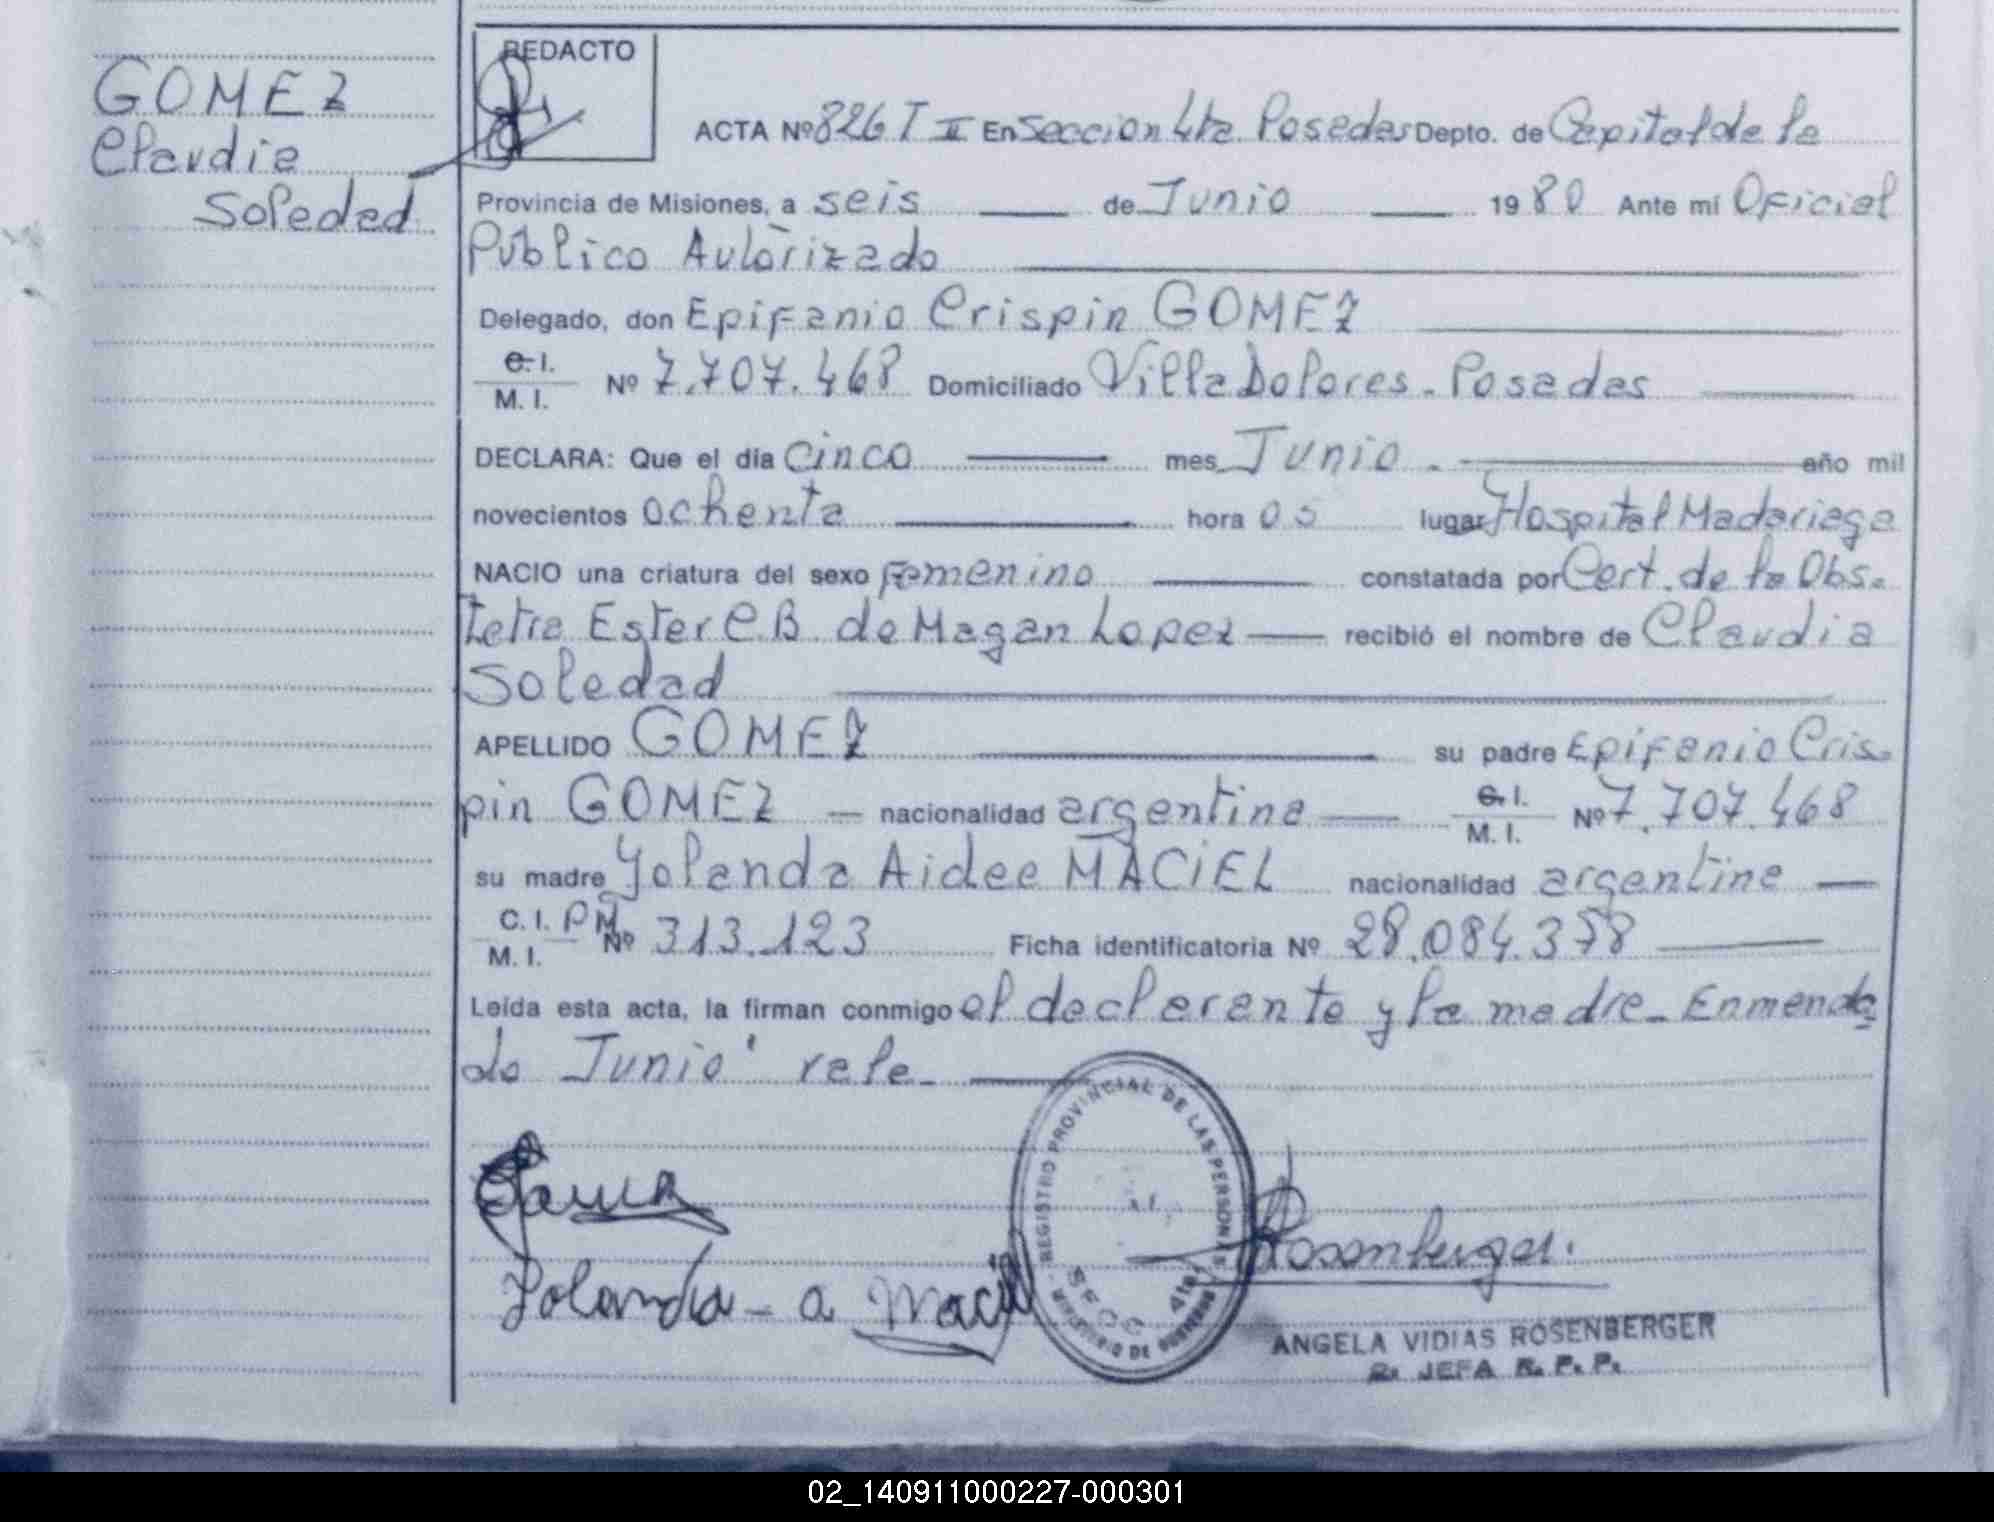 GOMEZ
Claudia
Soledad
REDACTO
ACTA Nº 826 T II En Seccion 4ta Posadas Depto. de Capital de la
Provincia de Misiones, a seis de Junio 19 80 Ante mí Oficial
Público Autorizado
Delegado, don Epifanio Crispin GOMEZ
C. I.
M. I. Nº 7.707.468 Domiciliado Villa Dolores - Posadas
DECLARA: Que el día cinco mes Junio. año mil
novecientos ochenta hora 05 lugar Hospital Madariaga
NACIO una criatura del sexo Femenino constatada por Cert. de la Obs.
tetra Ester C.B. de Magan Lopez recibió el nombre de Claudia
Soledad
APELLIDO GOMEZ su padre Epifanio Cris-
pin GOMEZ nacionalidad argentina C. I.
M. I. Nº 7.707.468
su madre Yolanda Aidee MACIEL nacionalidad argentina
C. I. PM
M. I. Nº 313.123 Ficha identificatoria Nº 28.084.378
Leída esta acta, la firman conmigo el declarante y la madre - Enmenda
do Junio' vale -
REGISTRO PROVINCIAL DE LAS PERSONAS
SECC 4ta
MINISTERIO DE GOBIERNO
Yolanda - a Maciel
Rosenberger.
ANGELA VIDIAS ROSENBERGER
JEFA R. P. P.
02_140911000227-000301